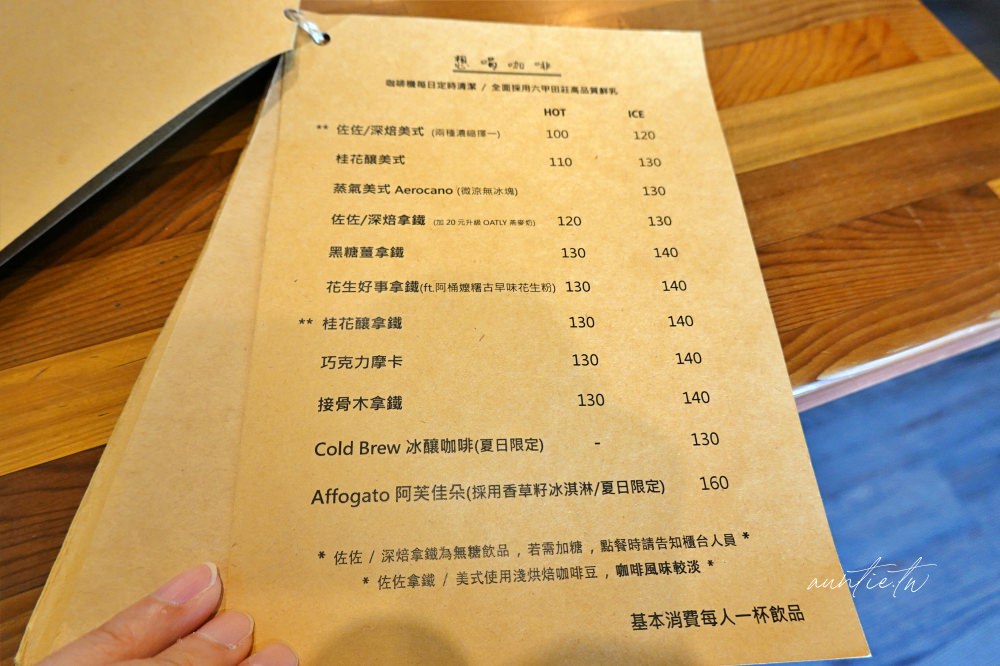 想喝咖啡
咖啡機每日定時清潔 / 全面採用六甲田莊高品質鮮乳
HOT ICE
** 佐佐/深焙美式 (兩種濃縮擇一) 100 120
桂花釀美式 110 130
蒸氣美式 Aerocano (微涼無冰塊) 130
佐佐/深焙拿鐵 (加 20 元升級 OATLY 燕麥奶) 120 130
黑糖薑拿鐵 130 140
花生好事拿鐵(ft.阿桶嬤糬古早味花生粉) 130 140
** 桂花釀拿鐵 130 140
巧克力摩卡 130 140
接骨木拿鐵 130 140
Cold Brew 冰釀咖啡(夏日限定) - 130
Affogato 阿芙佳朵(採用香草籽冰淇淋/夏日限定) 160
* 佐佐 / 深焙拿鐵為無糖飲品 , 若需加糖 , 點餐時請告知櫃台人員 *
* 佐佐拿鐵 / 美式使用淺烘焙咖啡豆 , 咖啡風味較淡 *
基本消費每人一杯飲品
auntie.tw